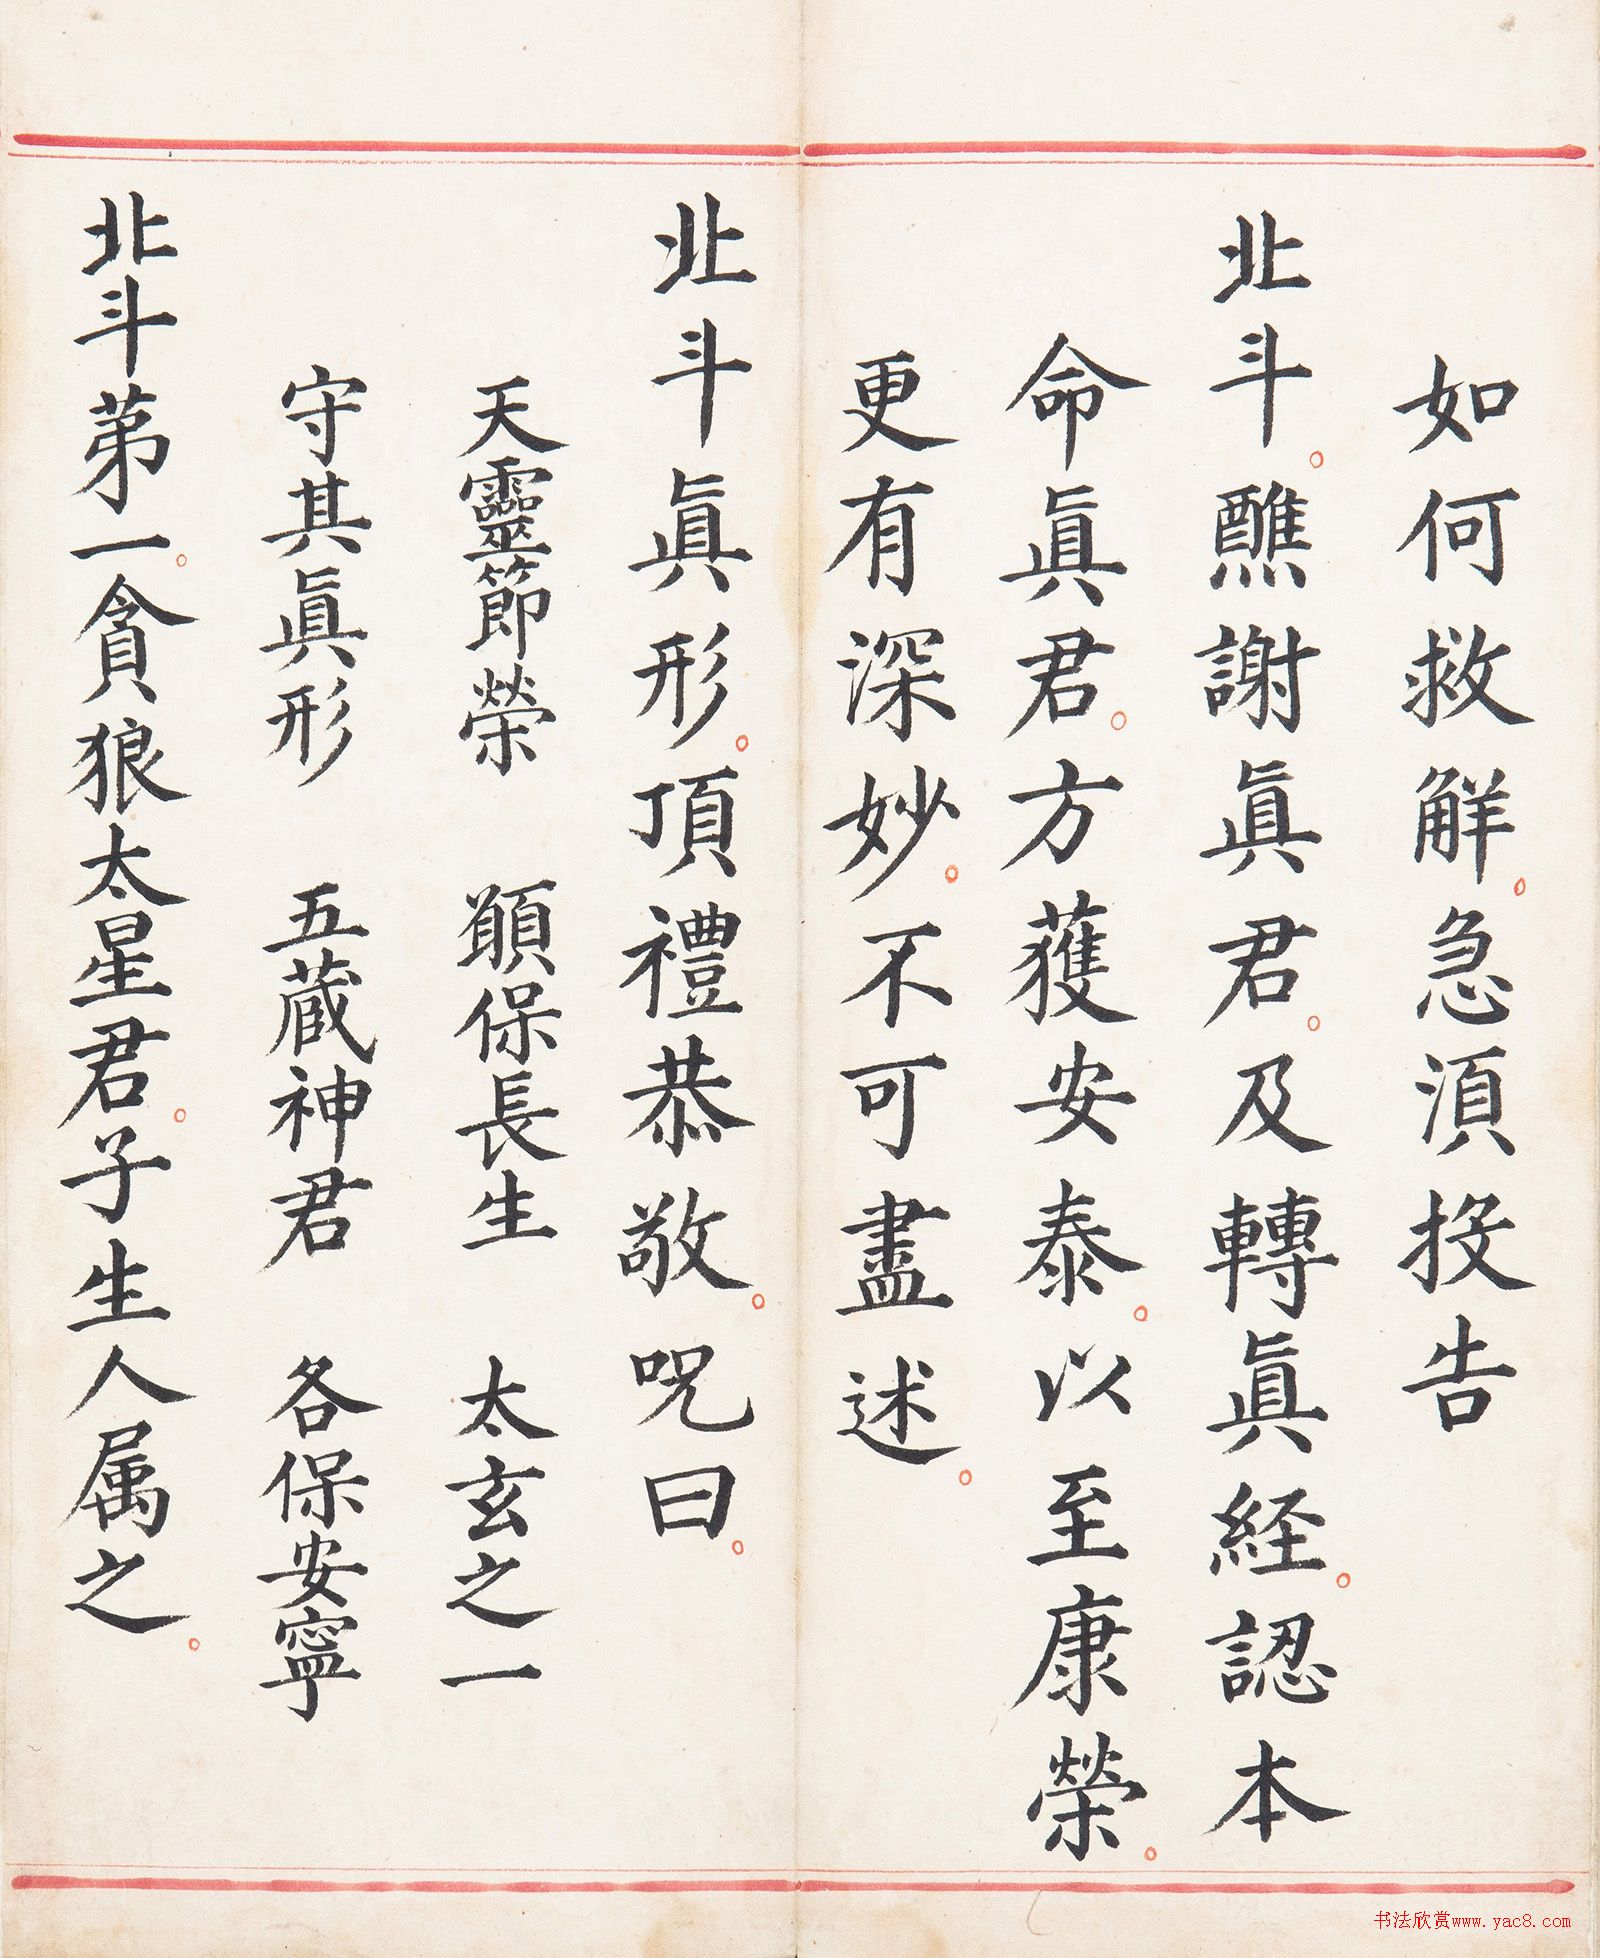 如何救解。急須投告
北斗。醮謝眞君。及轉眞経。認本
命眞君。方獲安泰。以至康榮。
更有深妙。不可盡述。
北斗眞形。頂禮恭敬。呪曰。
天靈節榮　願保長生　太玄之一
守其眞形　五蔵神君　各保安寧
北斗苐一。貪狼太星君。子生人属之。
书法欣赏www.yac8.com